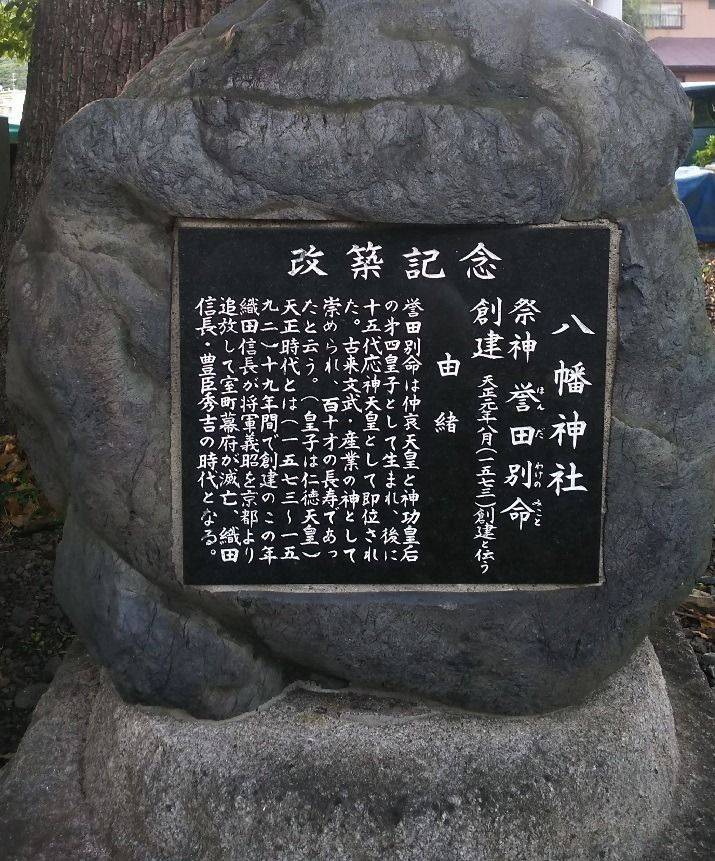 改築記念
八幡神社
祭神 誉田別命
ほんだわけのみこと
創建 天正元年八月(一五七三)創建と伝う
由緒
誉田別命は仲哀天皇と神功皇后
の㐧四皇子として生まれ、後に
十五代応神天皇として即位され
た。古来文武・産業の神として
崇められ、百十才の長寿であっ
たと云う。(皇子は仁徳天皇)
天正時代とは(一五七三〜一五
九二)十九年間で創建のこの年
織田信長が将軍義昭を京都より
追放して室町幕府が滅亡、織田
信長・豊臣秀吉の時代となる。